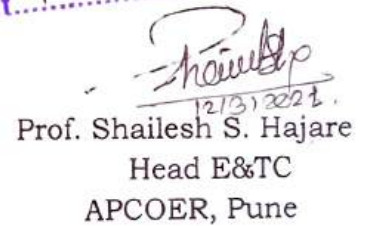 12/3/2021.
Prof. Shailesh S. Hajare
Head E&TC
APCOER, Pune